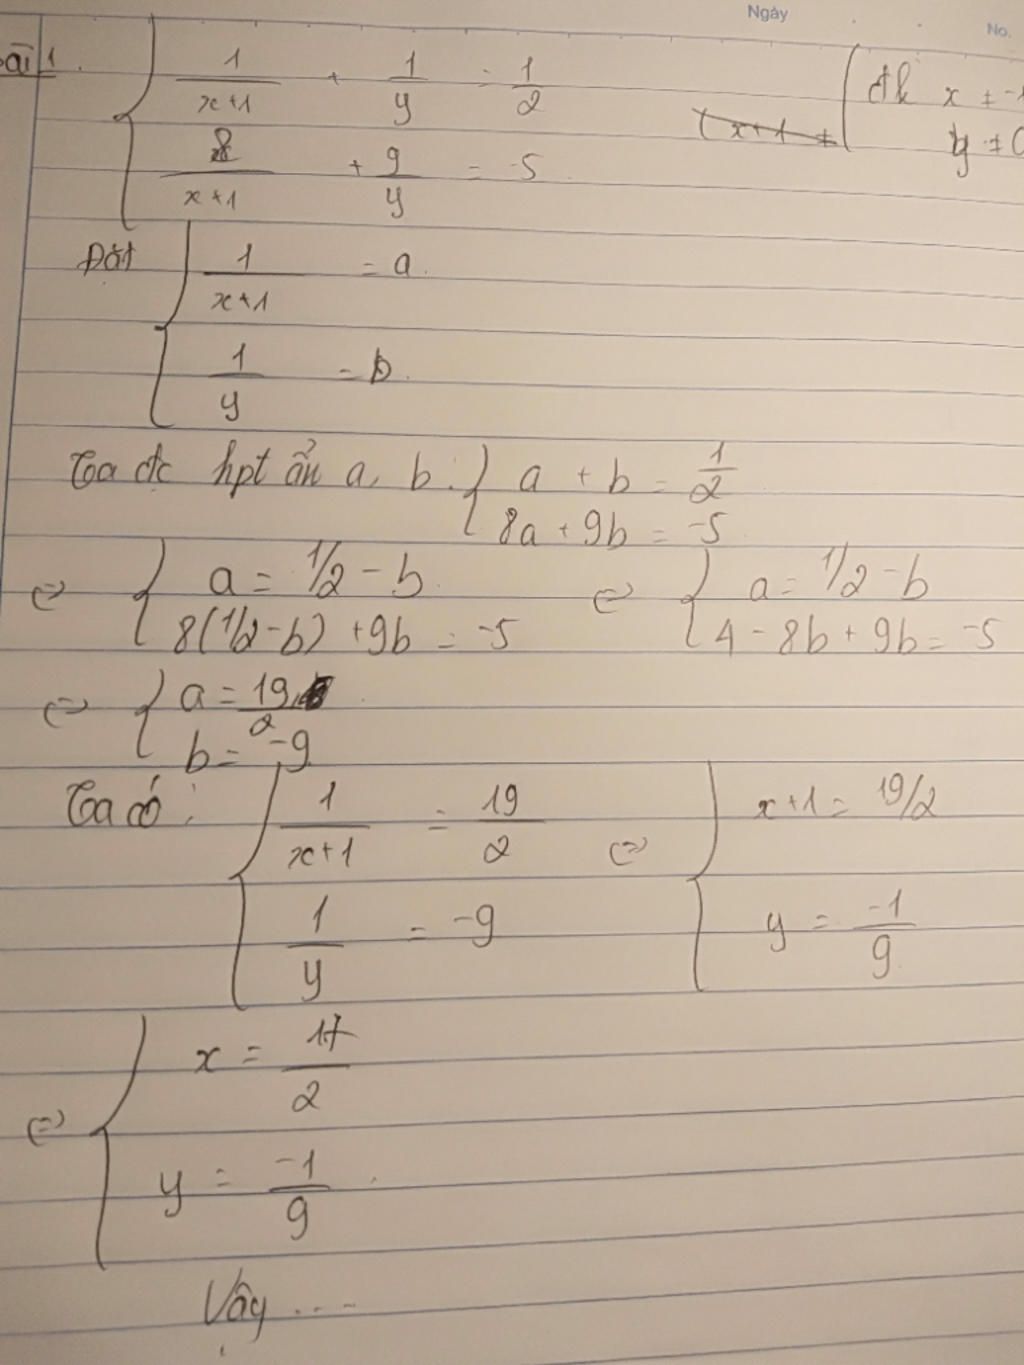 Ngày
No.
Bài 1.
{ 1/(x+1) + 1/y = 1/2
đk x ≠ -1
{ 8/(x+1) + 9/y = -5
y ≠ 0
Đặt { 1/(x+1) = a.
{ 1/y = b.
Ta đc hpt ẩn a, b: { a + b = 1/2
{ 8a + 9b = -5
⇔ { a = 1/2 - b ⇔ { a = 1/2 - b
{ 8(1/2-b) + 9b = -5 { 4 - 8b + 9b = -5
⇔ { a = 19/2
{ b = -9
Ta có: { 1/(x+1) = 19/2 ⇔ { x+1 = 19/2
{ 1/y = -9 { y = -1/9
⇔ { x = 17/2
{ y = -1/9.
Vậy ....